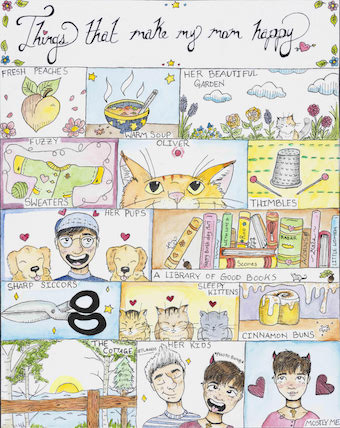 Things that make my mom happy
FRESH PEACHES
WARM SOUP
HER BEAUTIFUL
GARDEN
FUZZY
SWEATERS
OLIVER
THIMBLES
HER PUPS
A LIBRARY OF GOOD BOOKS
Scones
SHARP SICCORS
SLEEPY
KITTENS
CINNAMON BUNS
THE
COTTAGE
HER KIDS
MOSTLY ME